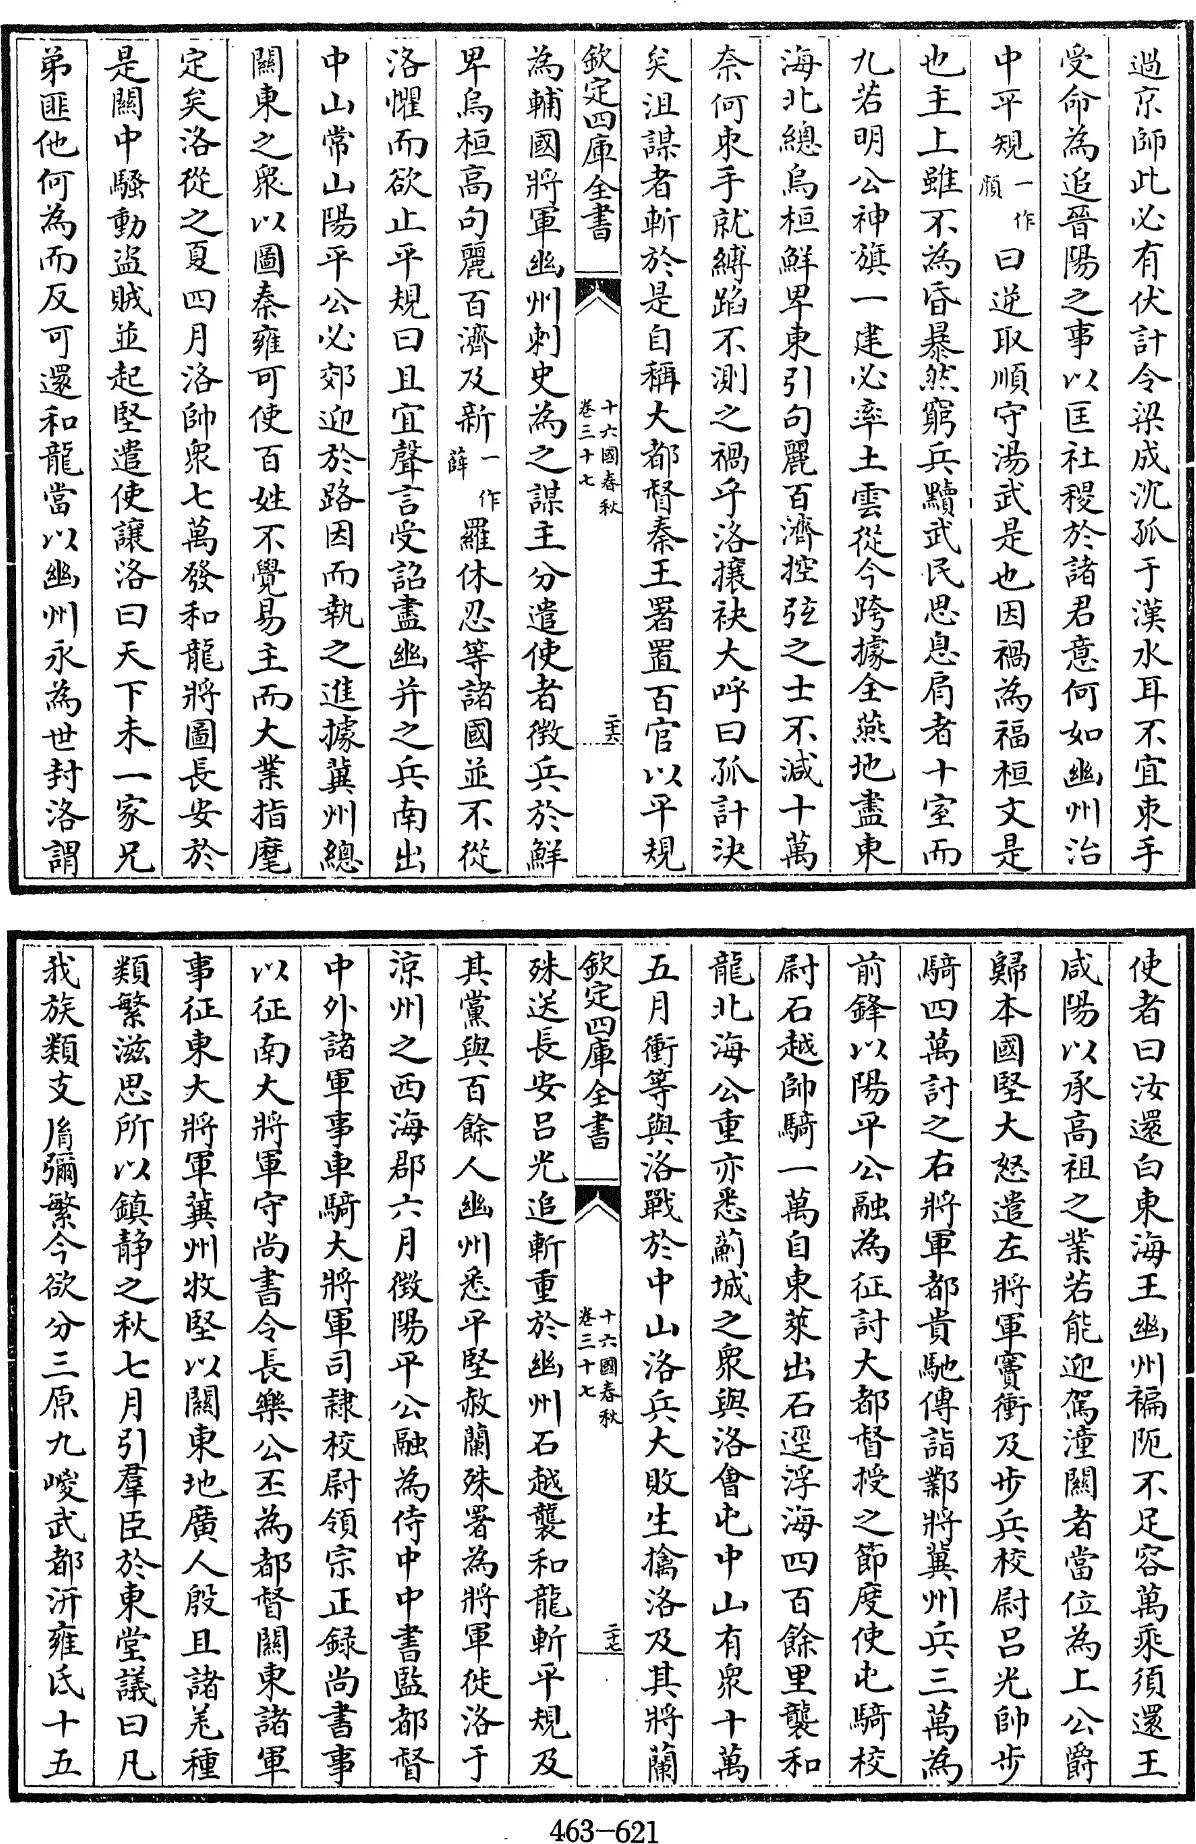 過京師此必有伏計令梁成沈孤于漢水耳不宜束手
受命為追晉陽之事以匡社稷於諸君意何如幽州治
中平規一作顏曰逆取順守湯武是也因禍為福桓文是
也主上雖不為昏暴然窮兵黷武民思息肩者十室而
九若明公神旗一建必率土雲從今跨據全燕地盡東
海北總烏桓鮮卑東引句麗百濟控弦之士不減十萬
奈何束手就縛蹈不測之禍乎洛攘袂大呼曰孤計決
矣沮謀者斬於是自稱大都督秦王署置百官以平規
欽定四庫全書
十六國春秋
卷三十七
二十六
為輔國將軍幽州刺史為之謀主分遣使者徵兵於鮮
卑烏桓高句麗百濟及新一作薛羅休忍等諸國並不從
洛懼而欲止平規曰且宜聲言受詔盡幽并之兵南出
中山常山陽平公必郊迎於路因而執之進據冀州總
關東之衆以圖秦雍可使百姓不覺易主而大業指麾
定矣洛從之夏四月洛帥衆七萬發和龍將圖長安於
是關中騷動盜賊並起堅遣使讓洛曰天下未一家兄
弟匪他何為而反可還和龍當以幽州永為世封洛謂
使者曰汝還白東海王幽州褊阨不足容萬乘須還王
咸陽以承高祖之業若能迎駕潼關者當位為上公爵
歸本國堅大怒遣左將軍竇衝及步兵校尉呂光帥步
騎四萬討之右將軍都貴馳傳詣鄴將冀州兵三萬為
前鋒以陽平公融為征討大都督授之節度使屯騎校
尉石越帥騎一萬自東萊出石逕浮海四百餘里襲和
龍北海公重亦悉薊城之衆與洛會屯中山有衆十萬
五月衝等與洛戰於中山洛兵大敗生擒洛及其將蘭
欽定四庫全書
十六國春秋
卷三十七
二十七
殊送長安呂光追斬重於幽州石越襲和龍斬平規及
其黨與百餘人幽州悉平堅赦蘭殊署為將軍徙洛于
涼州之西海郡六月徵陽平公融為侍中中書監都督
中外諸軍事車騎大將軍司隷校尉領宗正録尚書事
以征南大將軍守尚書令長樂公丕為都督關東諸軍
事征東大將軍冀州牧堅以關東地廣人殷且諸羌種
類繁滋思所以鎮静之秋七月引羣臣於東堂議曰凡
我族類支胤彌繁今欲分三原九嵕武都汧雍氐十五
463-621